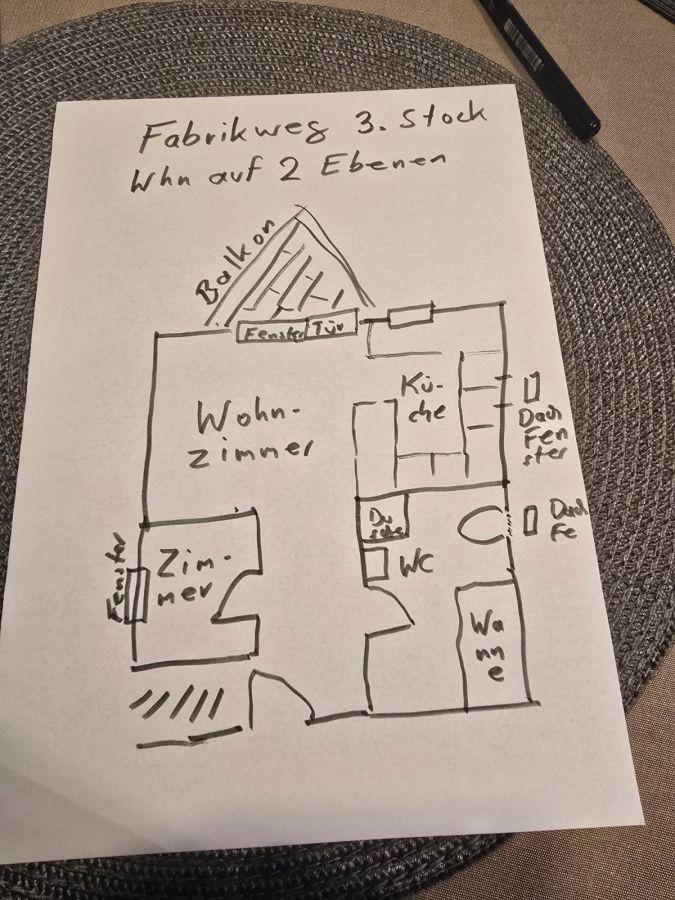 Fabrikweg 3. Stock
Whn auf 2 Ebenen
Balkon
Fenster Tür
Kü-
che
Dach
Fen
ster
Wohn-
zimmer
Du
sche
Dach
Fe
WC
Fenster
Zim-
mer
Wa
nn
e